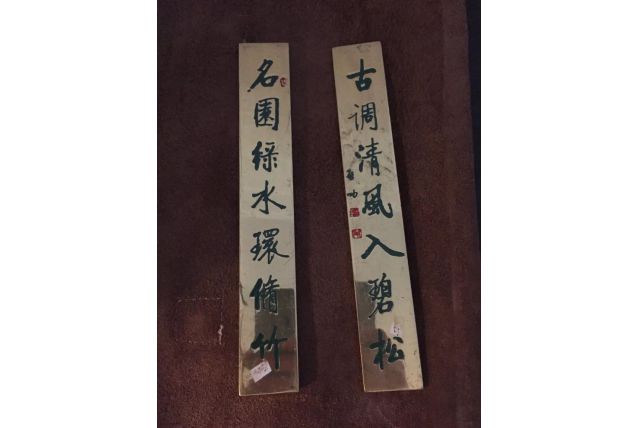 名園綠水環脩竹
古调清風入碧松
启功